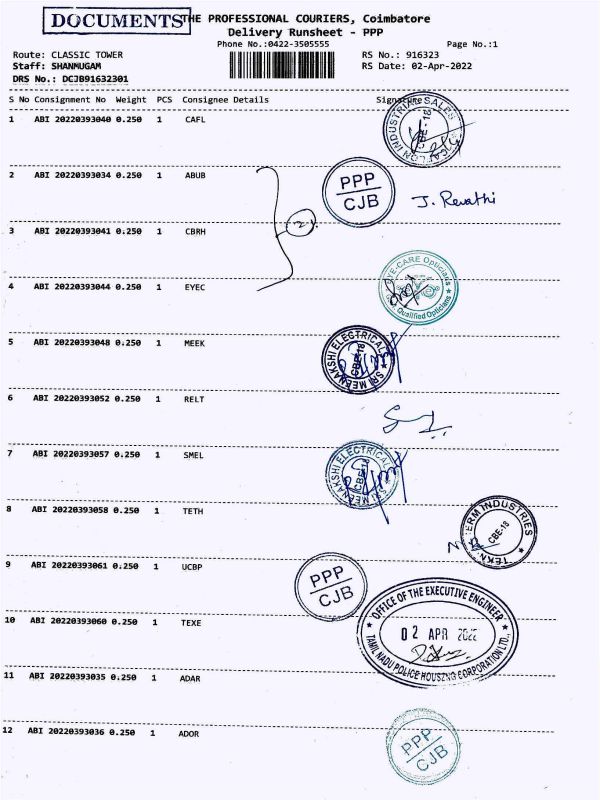 DOCUMENTS
THE PROFESSIONAL COURIERS, Coimbatore
Delivery Runsheet - PPP
Phone No.:0422-3505555
Page No.:1
Route: CLASSIC TOWER
RS No.: 916323
Staff: SHANMUGAM
RS Date: 02-Apr-2022
DRS No.: DCJB91632301
S No Consignment No Weight PCS Consignee Details Signature
1 ABI 20220393040 0.250 1 CAFL
INDUSTRIAL SALES
CBE-18
2 ABI 20220393034 0.250 1 ABUB
PPP
CJB
J. Revathi
3 ABI 20220393041 0.250 1 CBRH
2
4 ABI 20220393044 0.250 1 EYEC
EYE-CARE Opticians
Qualified Opticians
5 ABI 20220393048 0.250 1 MEEK
SRI MEENAKSHI ELECTRICALS
CBE-18
6 ABI 20220393052 0.250 1 RELT
7 ABI 20220393057 0.250 1 SMEL
SRI MEENAKSHI ELECTRICALS
CBE-18
8 ABI 20220393058 0.250 1 TETH
INDUSTRIES
CBE-18
9 ABI 20220393061 0.250 1 UCBP
PPP
CJB
10 ABI 20220393060 0.250 1 TEXE
OFFICE OF THE EXECUTIVE ENGINEER
02 APR 2022
TAMIL NADU POLICE HOUSING CORPORATION LTD.,
11 ABI 20220393035 0.250 1 ADAR
12 ABI 20220393036 0.250 1 ADOR
PPP
CJB